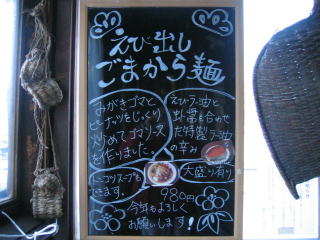 えび出し
ごまから麺
みがきゴマと
ピーナッツをじっくり
炒めてゴマソース
を作りました。
トンコツスープも
できます。
えびラー油と
を合わせ
た特製ラー油
の辛み
大盛り有り
980円
今年もよろしく
お願いします!